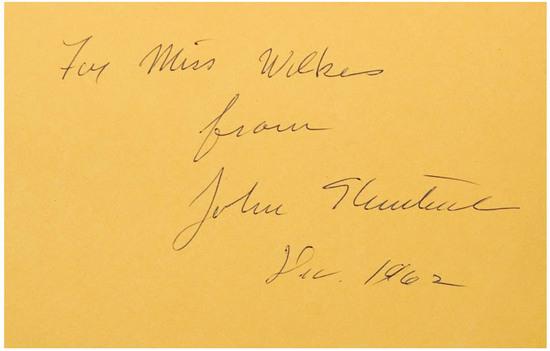 For Miss Wilkes
from
John Steinbeck
Dec. 1962